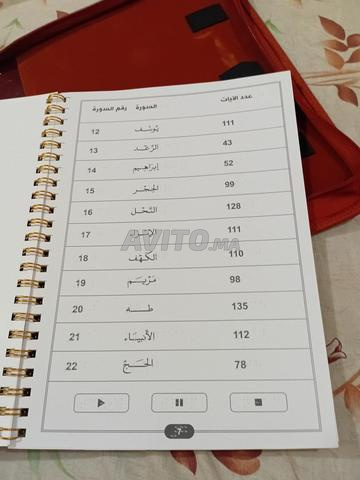 رقم السورة السورة عدد الآيات
12 يُوسُف 111
13 الرَّعْد 43
14 إبراهيم 52
15 الحِجْر 99
16 النَّحْل 128
17 الإسراء 111
18 الكَهْف 110
19 مَرْيَم 98
20 طه 135
21 الأنبيَاء 112
22 الحَجّ 78
7
AVITO.ma